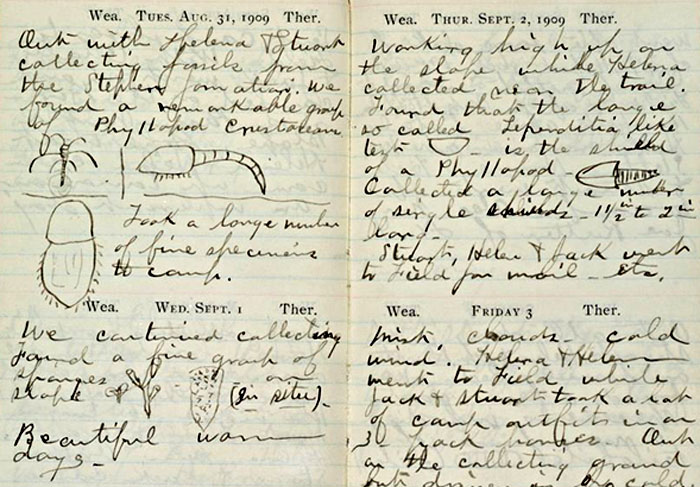 Wea. TUES. AUG. 31, 1909 Ther.
Out with Helena & Stuart
collecting fossils from
the Stephen formation. We
found a remarkable group
of Phyllopod Crustaceans
Took a large number
of fine specimens
to camp.
Wea. WED. SEPT. 1 Ther.
We continued collecting
Found a fine group of
sponges on
slope (in situ)_
Beautiful warm
days_
Wea. THUR. SEPT. 2, 1909 Ther.
Working high up on
the slope while Helena
collected near the trail.
Found that the large
so called Leperditia like
test _ is the shield
of a Phyllopod_
Collected a large number
of single shields_ 1 1/2 in to 2 in
long_
Stuart, Helen & Jack went
to Field for mail_ etc.
Wea. FRIDAY 3 Ther.
Mist, clouds_ cold
wind. Helena & Helen
went to Field while
Jack & Stuart took a lot
of camp outfits in on
3 pack horses_ Out
on the collecting ground
but driven in cold